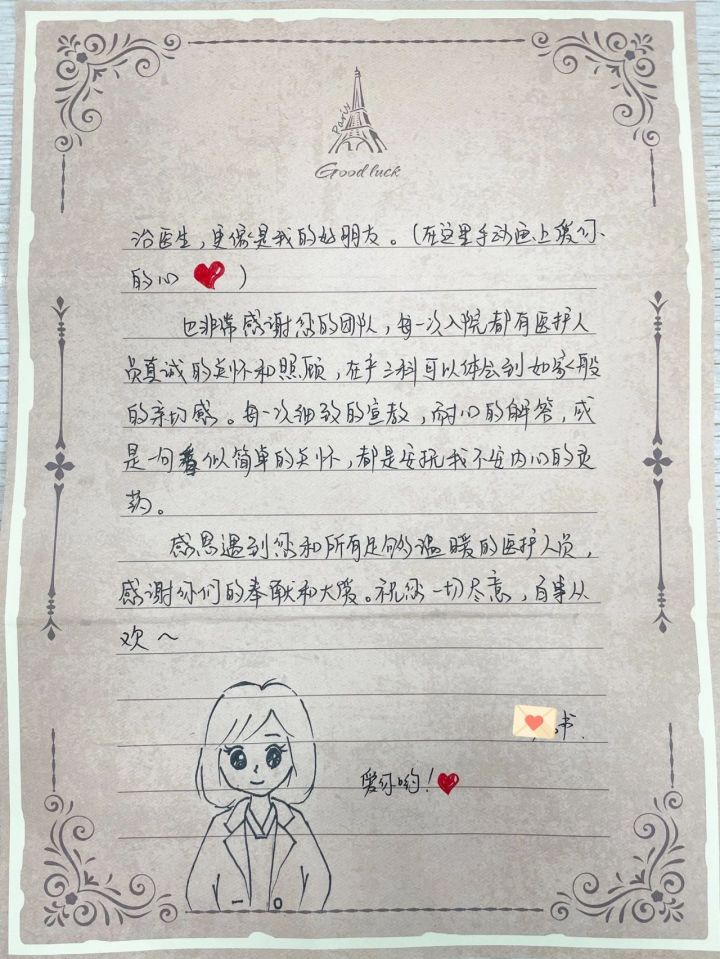 Paris
Good luck
治医生,更像是我的好朋友。(在这里手动画上爱你
的心 )
也非常感谢您的团队,每一次入院都有医护人
员真诚的关怀和照顾,在产三科可以体会到如家般
的亲切感。每一次细致的宣教,耐心的解答,或
是一句看似简单的关怀,都是安抚我不安内心的灵
药。
感恩遇到您和所有足够温暖的医护人员,
感谢你们的奉献和大爱。祝您一切尽意,百事从
欢~
书
爱你哟!